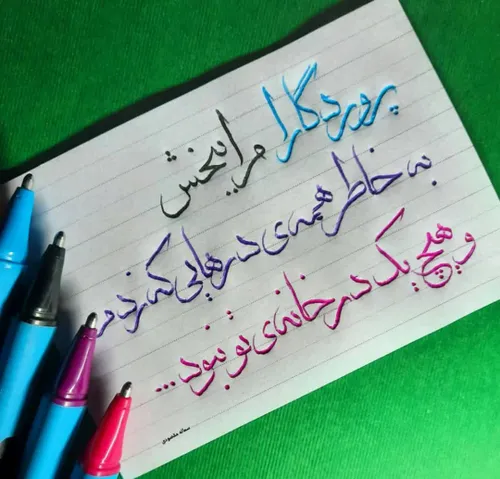 پروردگارا مرا ببخش
به خاطر همه‌ی درهایی که زدم
و هیچ یک در خانه‌ی تو نبود...